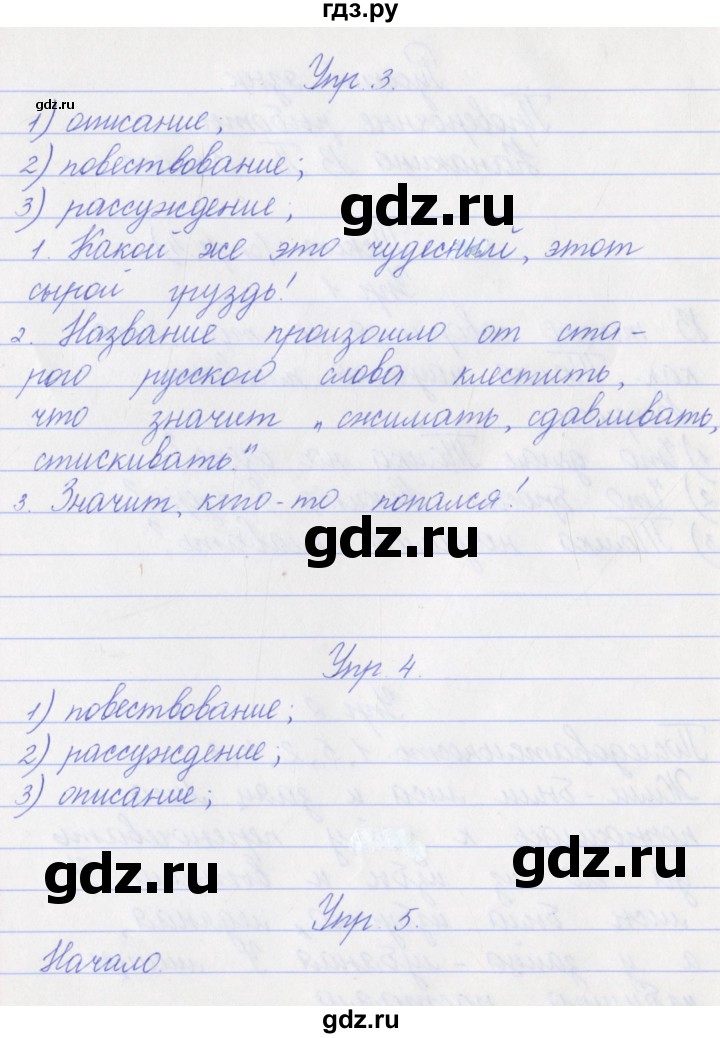 гдз.ру
Упр. 3.
gdz.ru
1) описание;
2) повествование;
gdz.ru
3) рассуждение;
1. Какой же это чудесный, этот
сырой груздь!
2. Название произошло от ста-
рого русского слова клестить,
что значит „сжимать, сдавливать,
стискивать."
3. Значит, кто-то попался!
gdz.ru
Упр. 4.
1) повествование;
2) рассуждение;
3) описание;
gdz.ru
gdz.ru
Упр. 5.
Начало.
gdz.ru